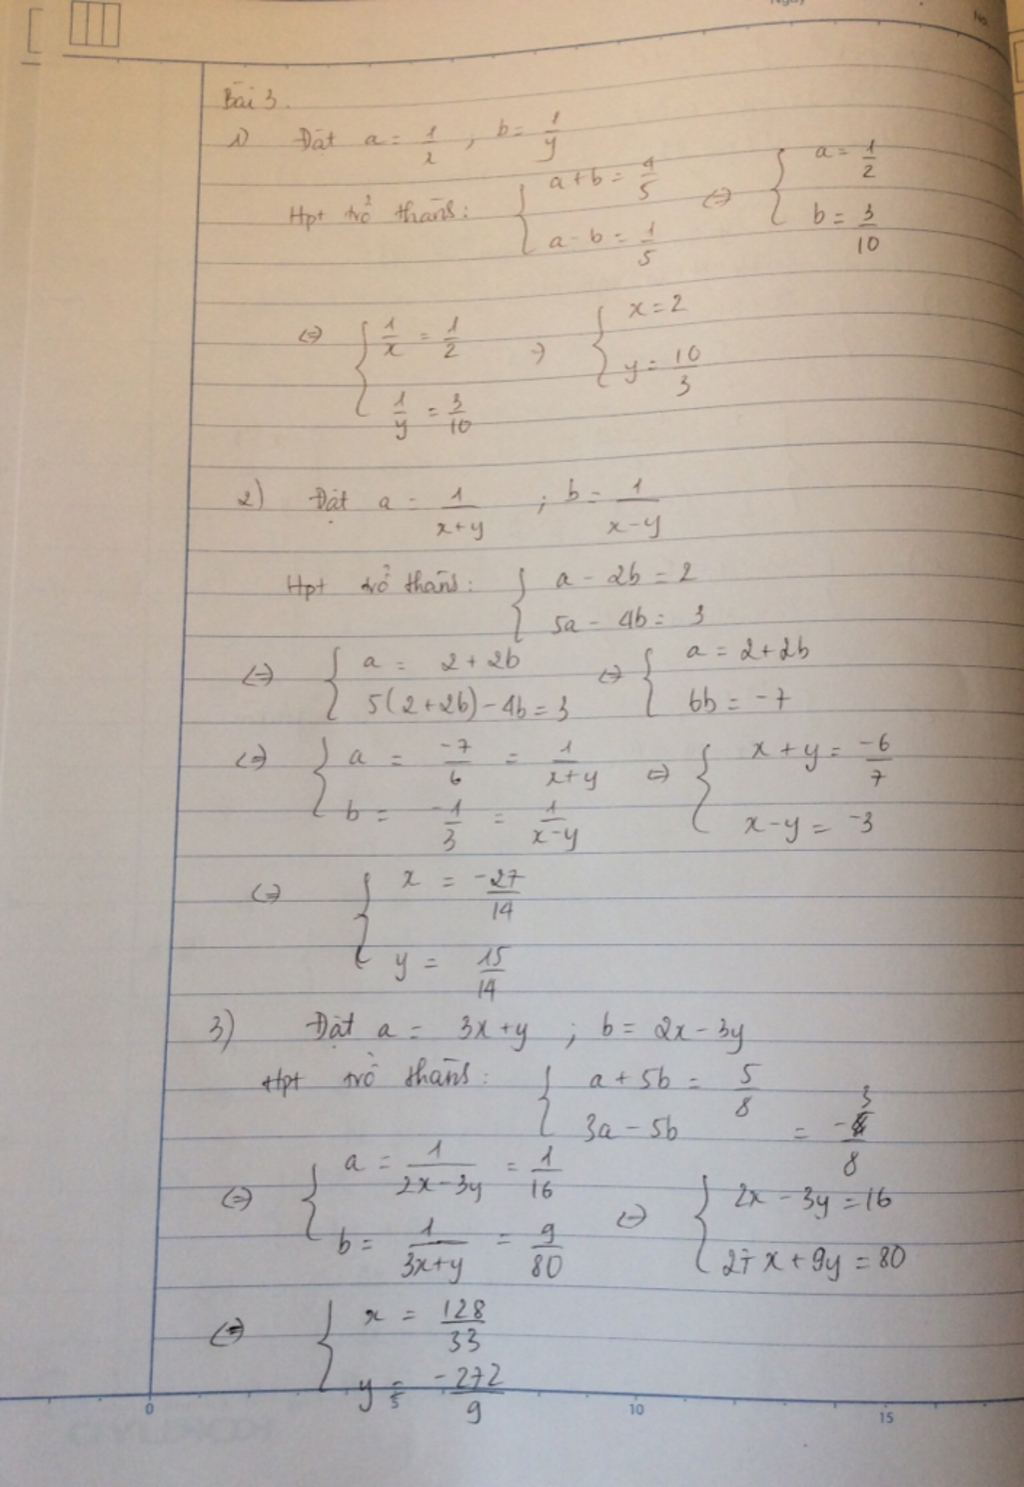 Ngày
No.
Bài 3.
1) Đặt a = 1/x ; b = 1/y
Hpt trở thành: { a + b = 4/5 ; a - b = 1/5 <=> { a = 1/2 ; b = 3/10
<=> { 1/x = 1/2 ; 1/y = 3/10 => { x = 2 ; y = 10/3
2) Đặt a = 1/(x+y) ; b = 1/(x-y)
Hpt trở thành: { a - 2b = 2 ; 5a - 4b = 3
<=> { a = 2 + 2b ; 5(2+2b) - 4b = 3 <=> { a = 2 + 2b ; 6b = -7
<=> { a = -7/6 = 1/(x+y) ; b = -1/3 = 1/(x-y) => { x + y = -6/7 ; x - y = -3
<=> { x = -27/14 ; y = 15/14
3) Đặt a = 3x + y ; b = 2x - 3y
Hpt trở thành: { a + 5b = 5/8 ; 3a - 5b = -3/8
<=> { a = 1/(2x-3y) = 1/16 ; b = 1/(3x+y) = 9/80 <=> { 2x - 3y = 16 ; 27x + 9y = 80
<=> { x = 128/33 ; y = -272/9
0 5 10 15